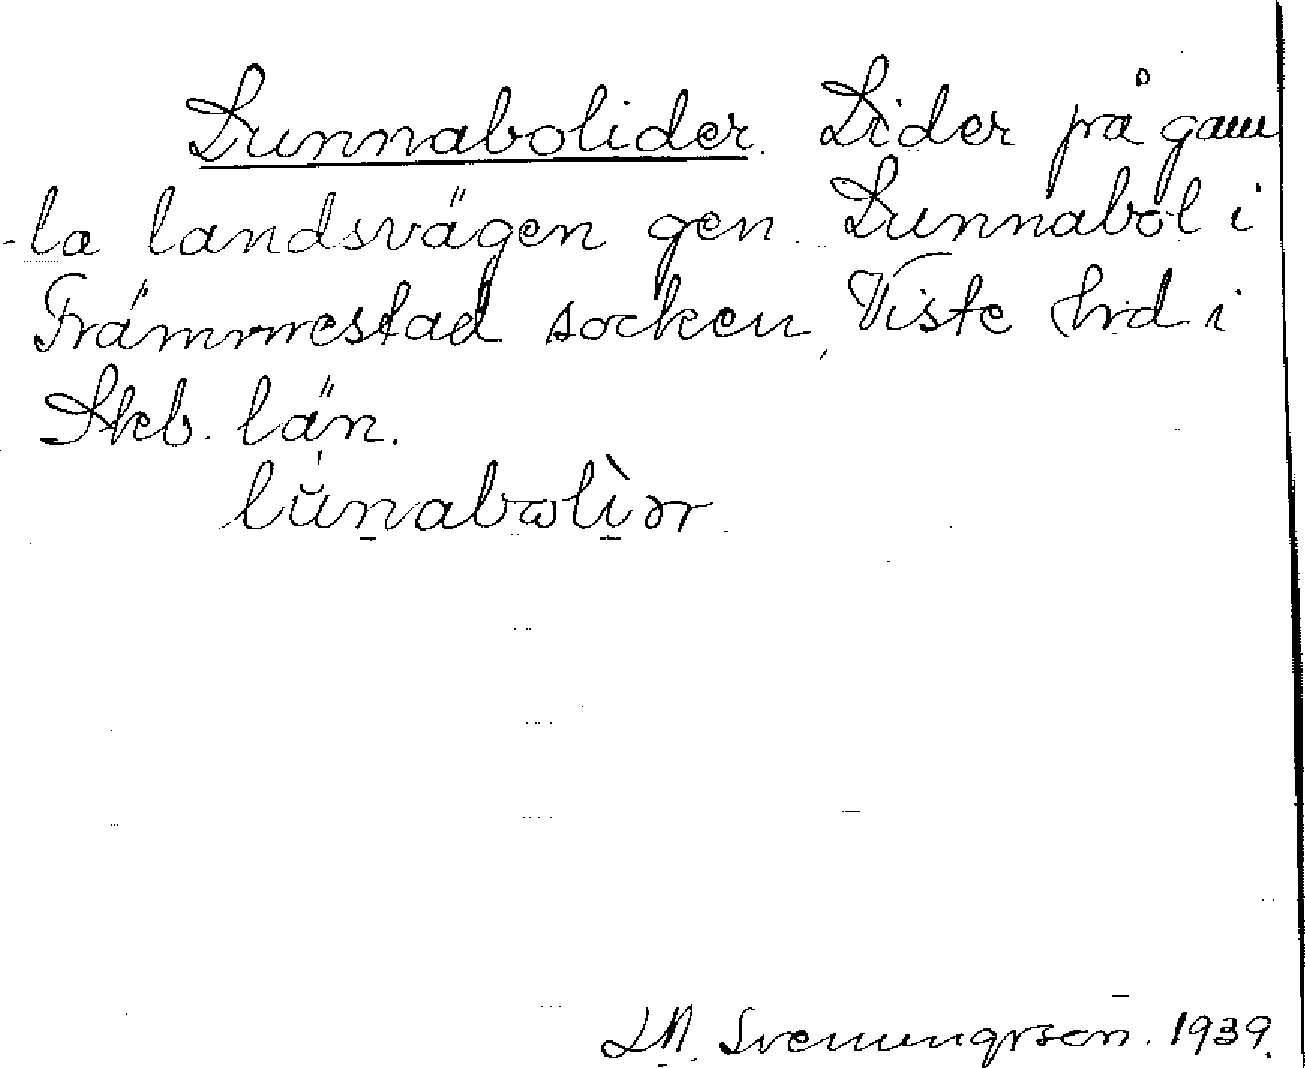 Lunnabolider. Lider på gam
-la landsvägen gen. Lunnabol i
Främmestad socken, Viste hrd i
Skb. län.
lŭnabωlìər
L.N. Svenungsson. 1939.